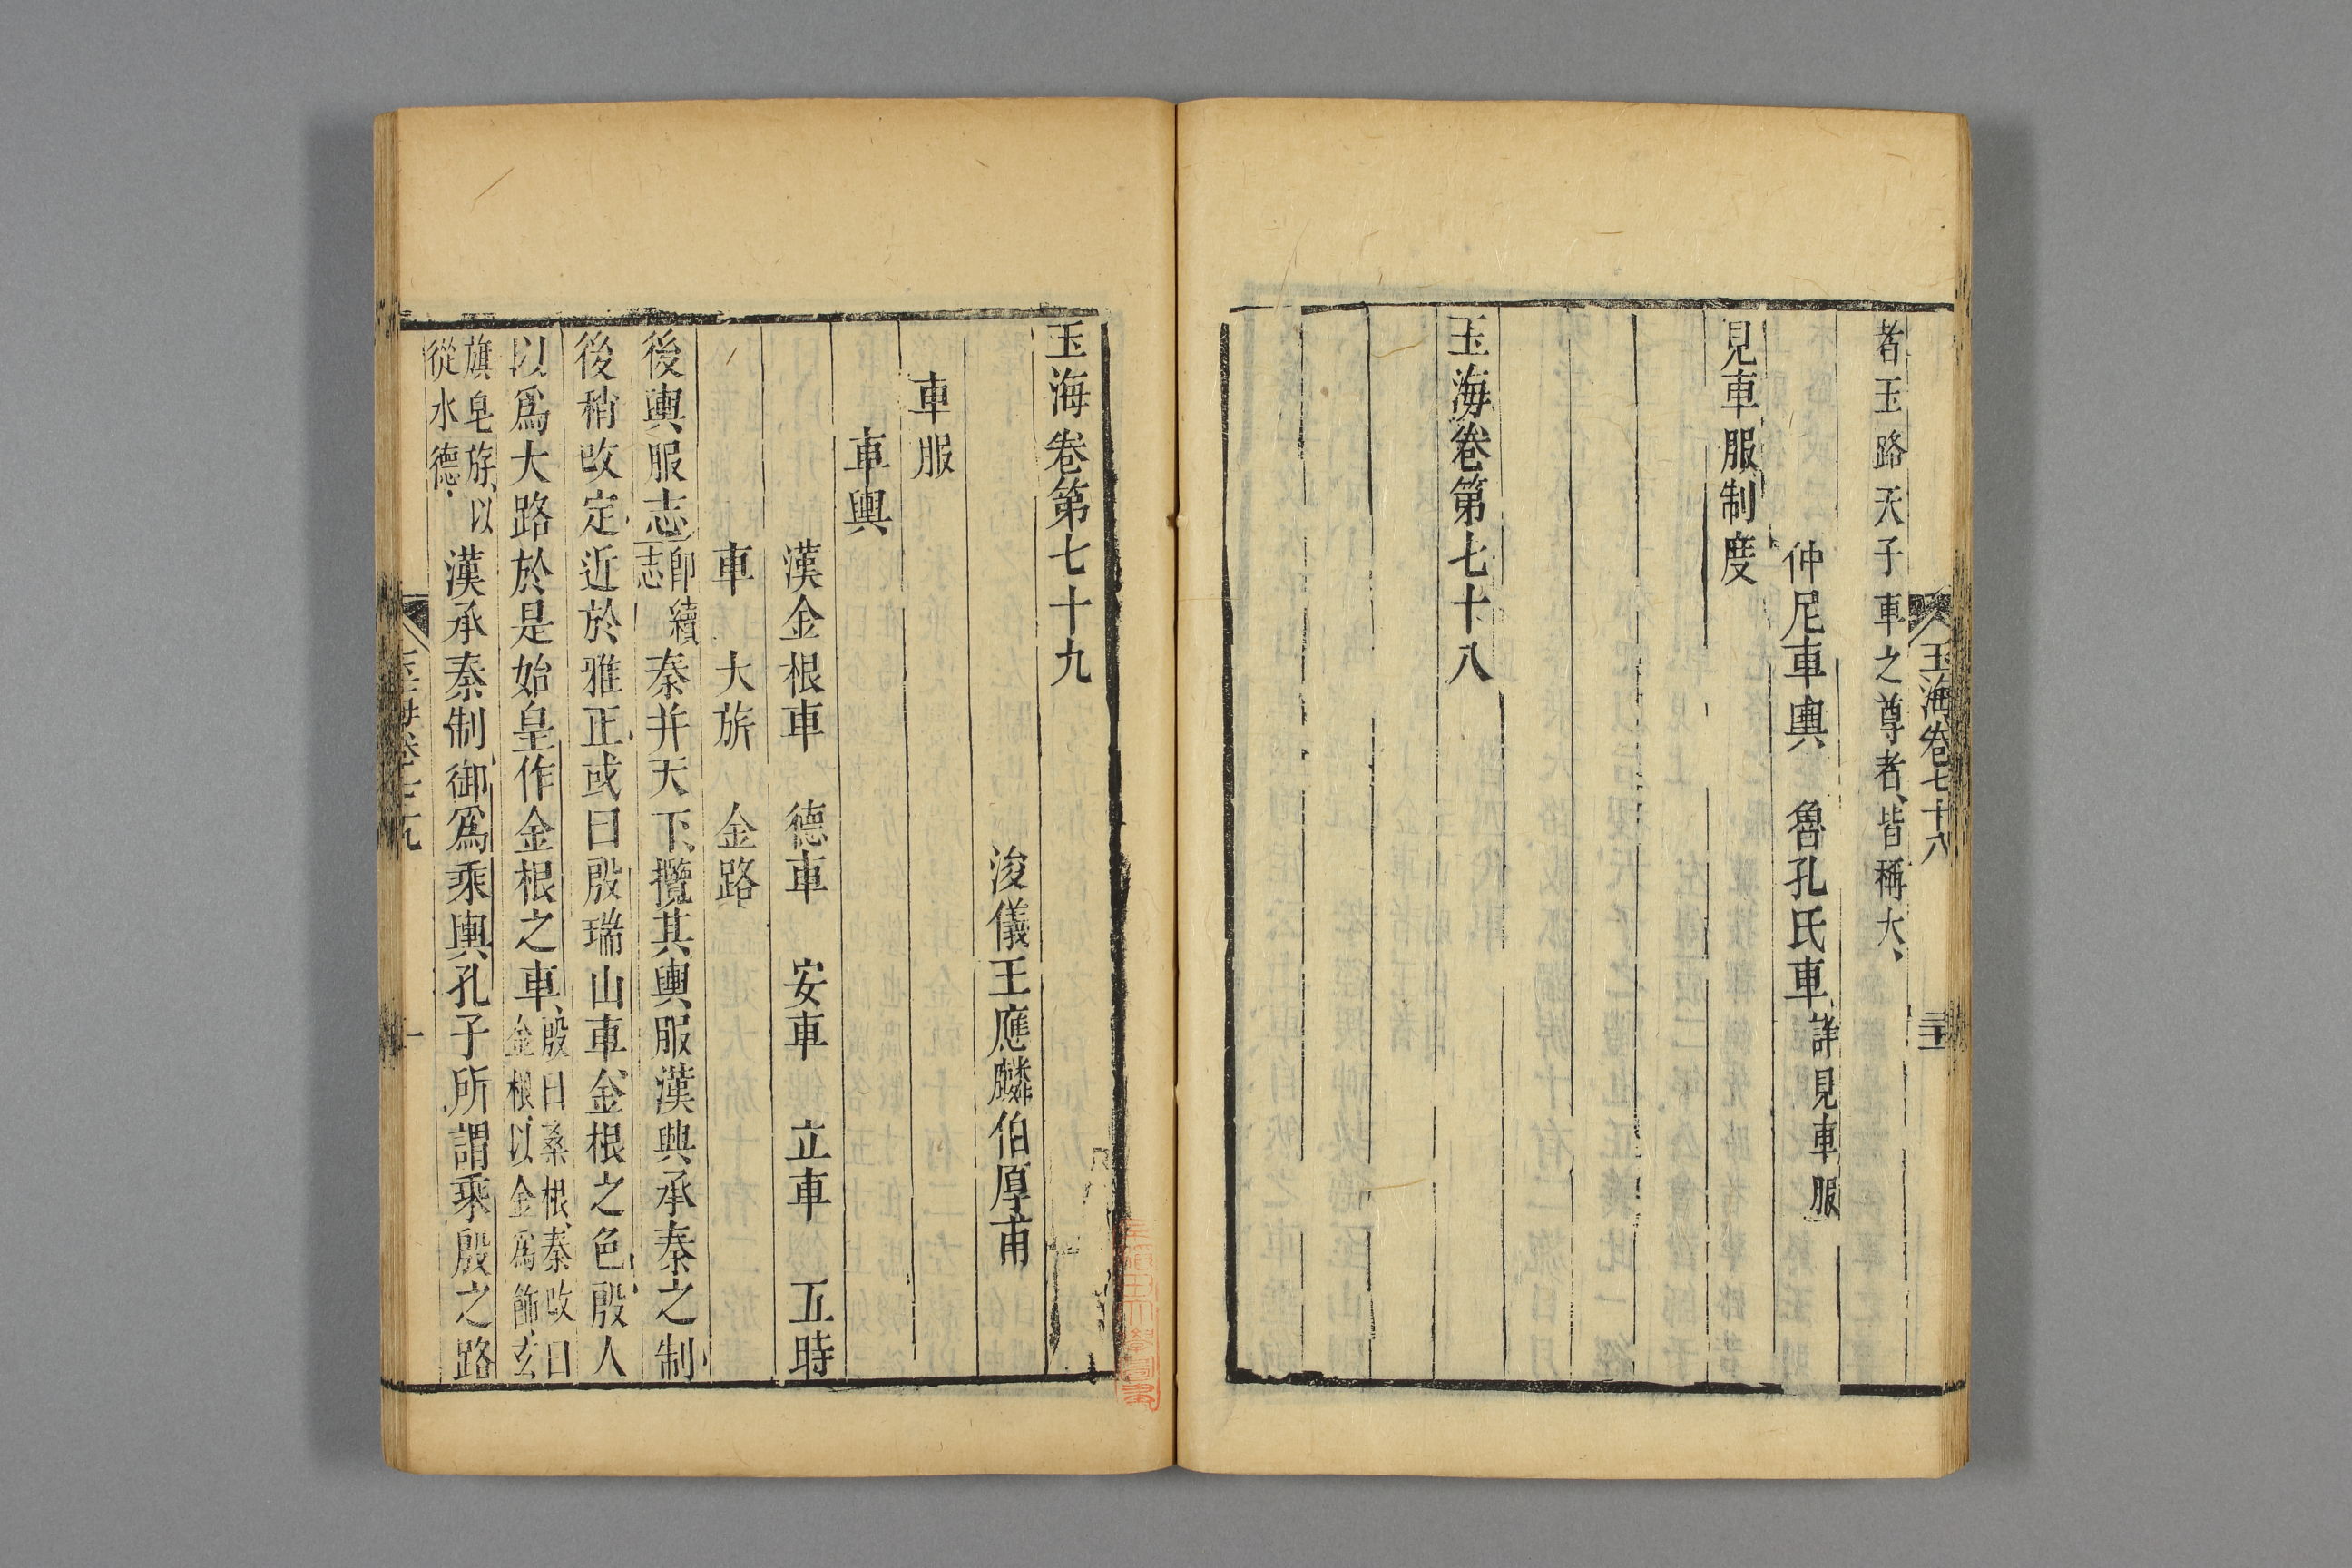 者玉路天子車之尊者皆稱大
仲尼車輿　魯孔氏車詳見車服
見車服制度
玉海卷第七十八
玉海卷七十八
玉海卷第七十九
浚儀王應麟伯厚甫
車服
車輿
漢金根車　德車　安車　立車　五時
車　大旂　金路
後輿服志即續志秦并天下攬其輿服漢興承秦之制
後稍改定近於雅正或曰殷瑞山車金根之色殷人
以爲大路於是始皇作金根之車殷曰桑根秦改曰金根以金爲飾玄
旗皂斿以從水德漢承秦制御爲乘輿孔子所謂乘殷之路
玉海卷七十九